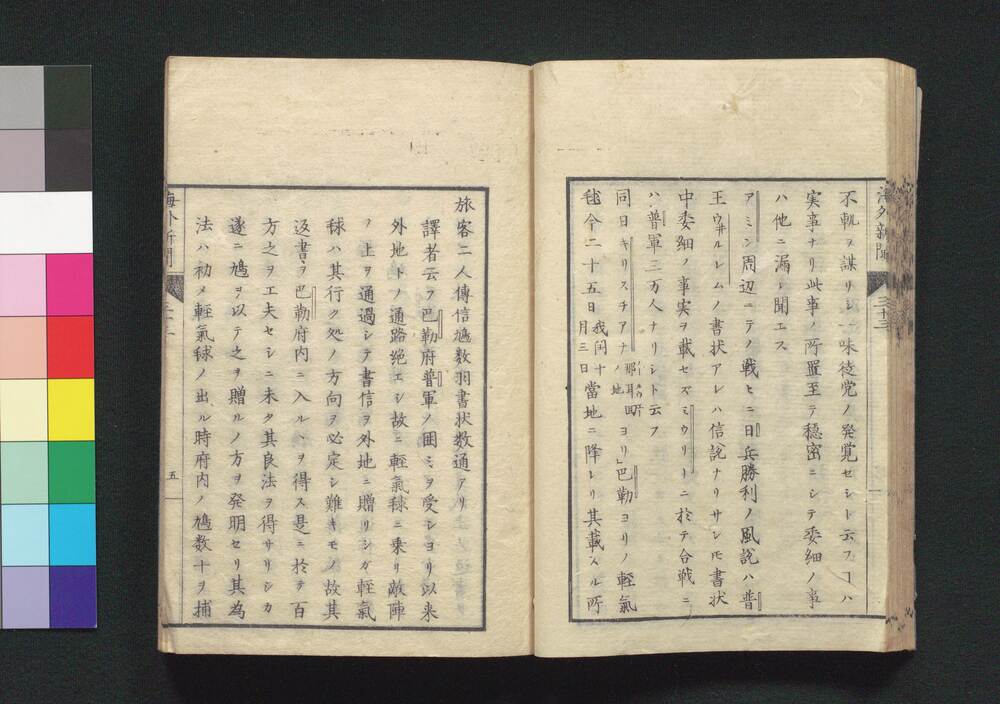 海外新聞 三十三
不軌ヲ謀リシ一味徒党ノ発覚セシト云フヿハ
実事ナリ此事ノ所置至テ穏密ニシテ委細ノ事
ハ他ニ漏レ聞エス
アミン周辺ニテノ戦ヒニ日兵勝利ノ風説ハ普
王ウ井ルレムノ書状アレハ信説ナリサレ𪜈書状
中委細ノ事実ヲ載セズミウリートニ於テ合戦ニ
ハ普軍三万人ナリシト云フ
同日キリスチアナ那耳回ノ地ヨリ巴勒ヨリノ軽気
毬今二十五日我閏十月三日當地ニ降レリ其載スル所
旅客二人傳信鳩数羽書状数通アリ
譯者云フ巴勒府普軍ノ囲ミヲ受シヨリ以来
外地トノ通路絶エシ故ニ輕氣毬ニ乗リ敵陣
ノ上ヲ通過シテ書信ヲ外地ニ贈リシガ輕氣
毬ハ其行ク処ノ方向ヲ必定シ難キモノ故其
返書ヲ巴勒府内ニ入ルヽヲ得ス是ニ於テ百
方之ヲ工夫セシニ未タ其良法ヲ得サリシカ
遂ニ鳩ヲ以テ之ヲ贈ルノ方ヲ発明セリ其為
法ハ初メ輕氣毬ノ出ル時府内ノ鳩数十ヲ捕
海外新聞
五